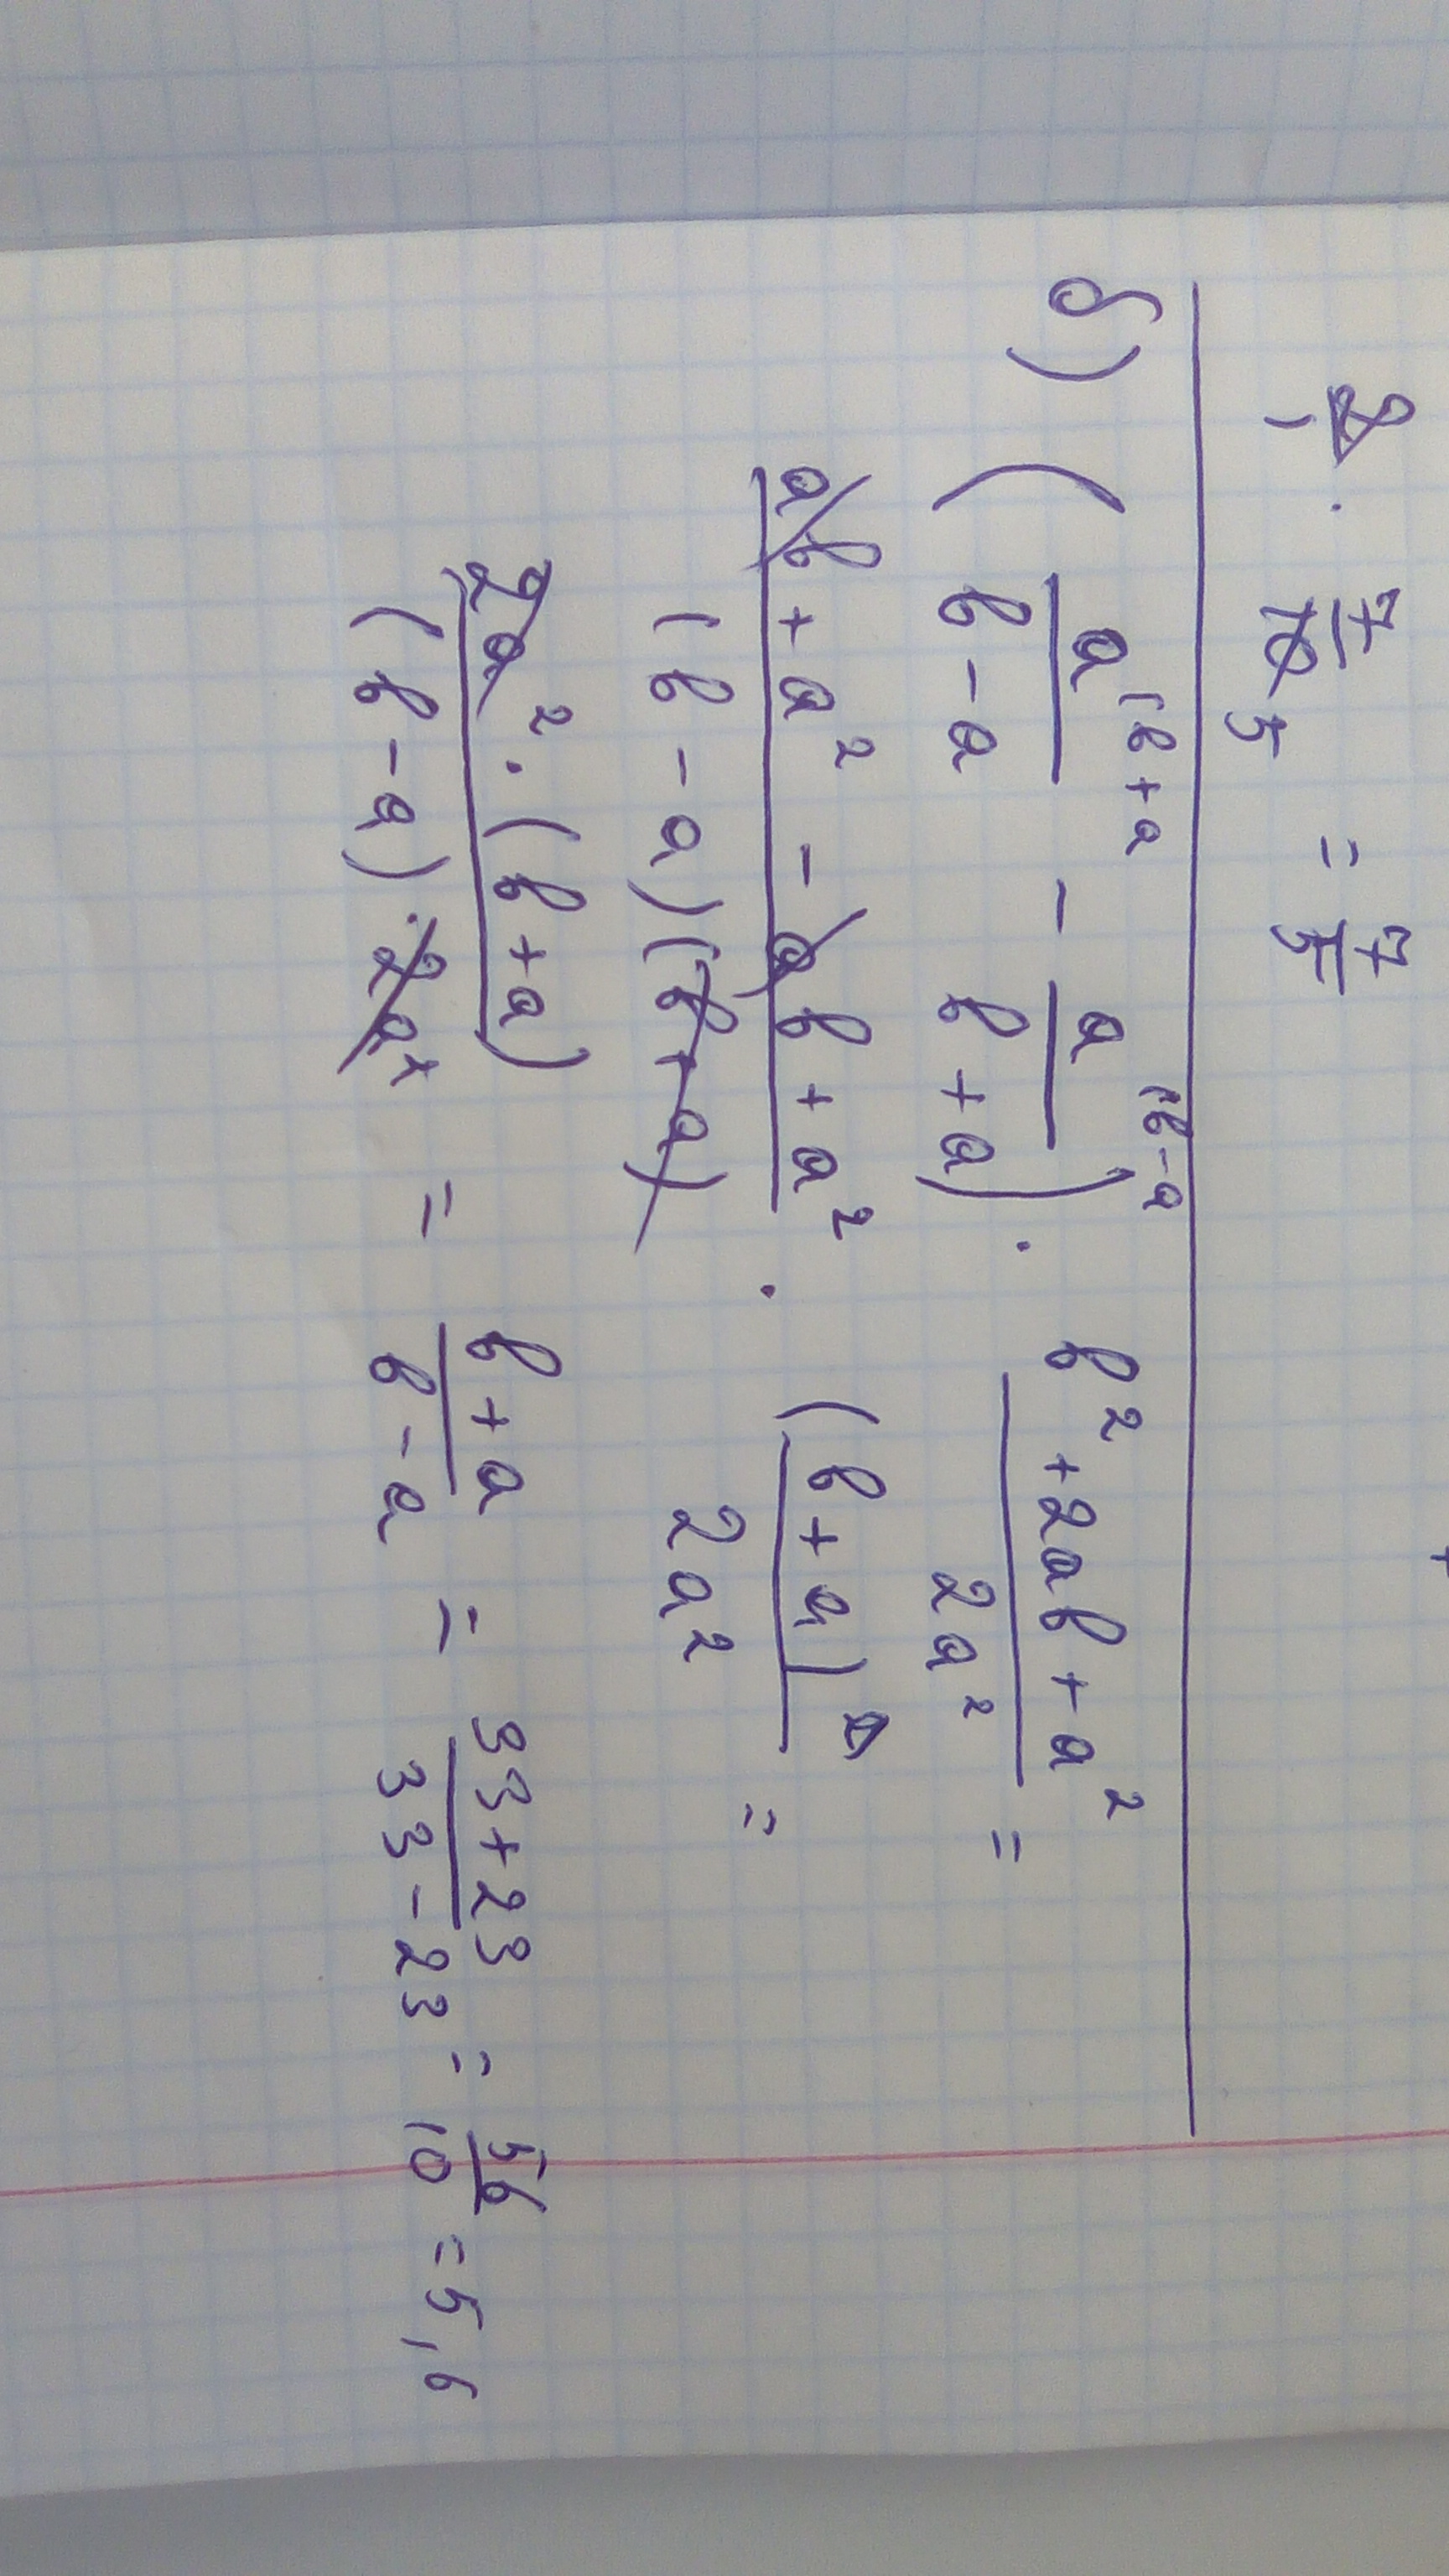 2/1 · 7/10 5 = 7/5
б) ( a^(в+a / в-a - a^(в-a / в+a ) · в²+2aв+a² / 2a² =
aв+a²-aв+a² / (в-a)(в+a) · (в+a)² / 2a² =
2a²·(в+a) / (в-a)·2a² = в+a / в-a = 33+23 / 33-23 = 56/10 = 5,6